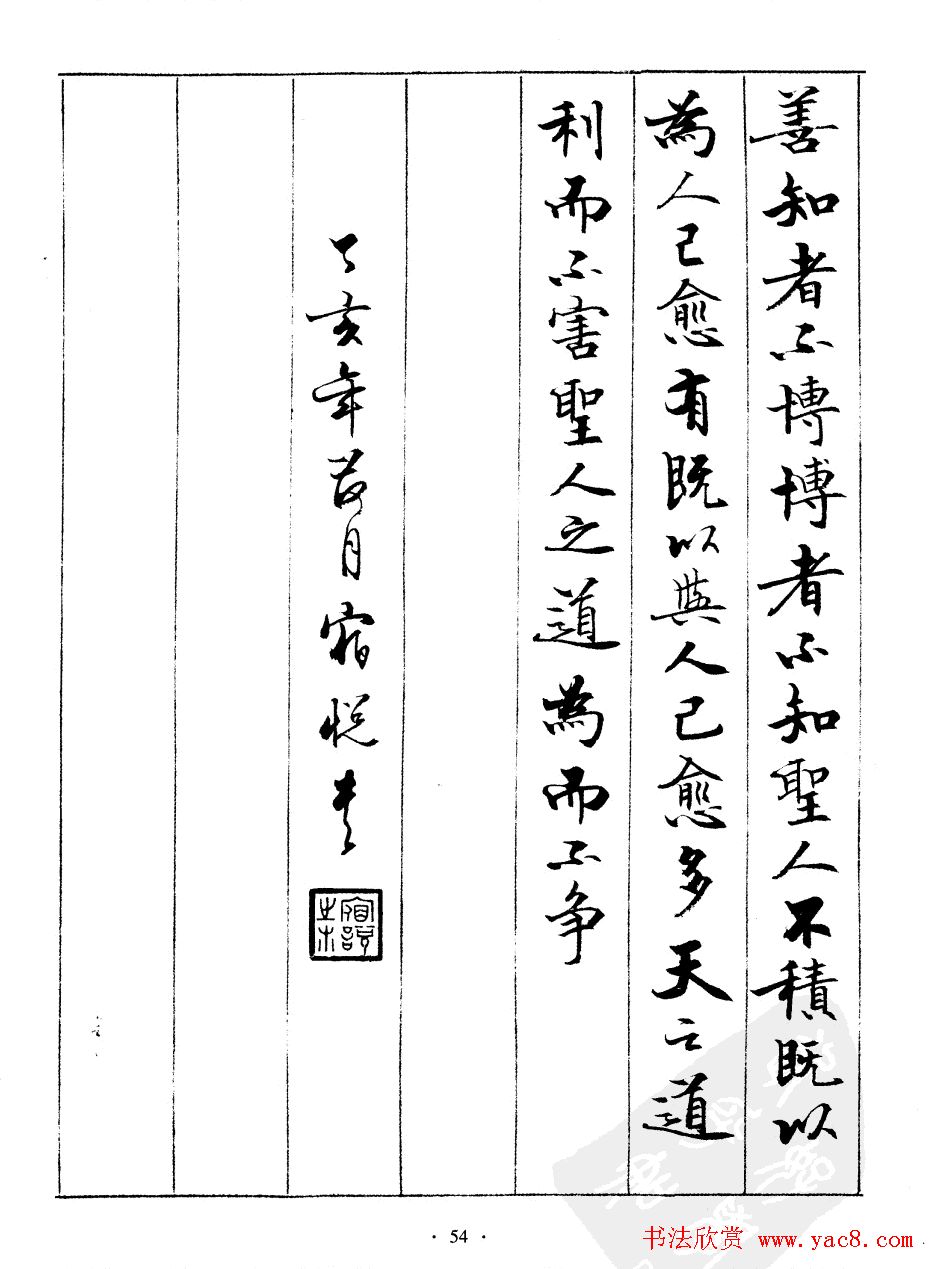 善知者不博博者不知聖人不積既以
為人己愈有既以與人己愈多天之道
利而不害聖人之道為而不争
丁亥年月宿悦書
· 54 ·
书法欣赏 www.yac8.com